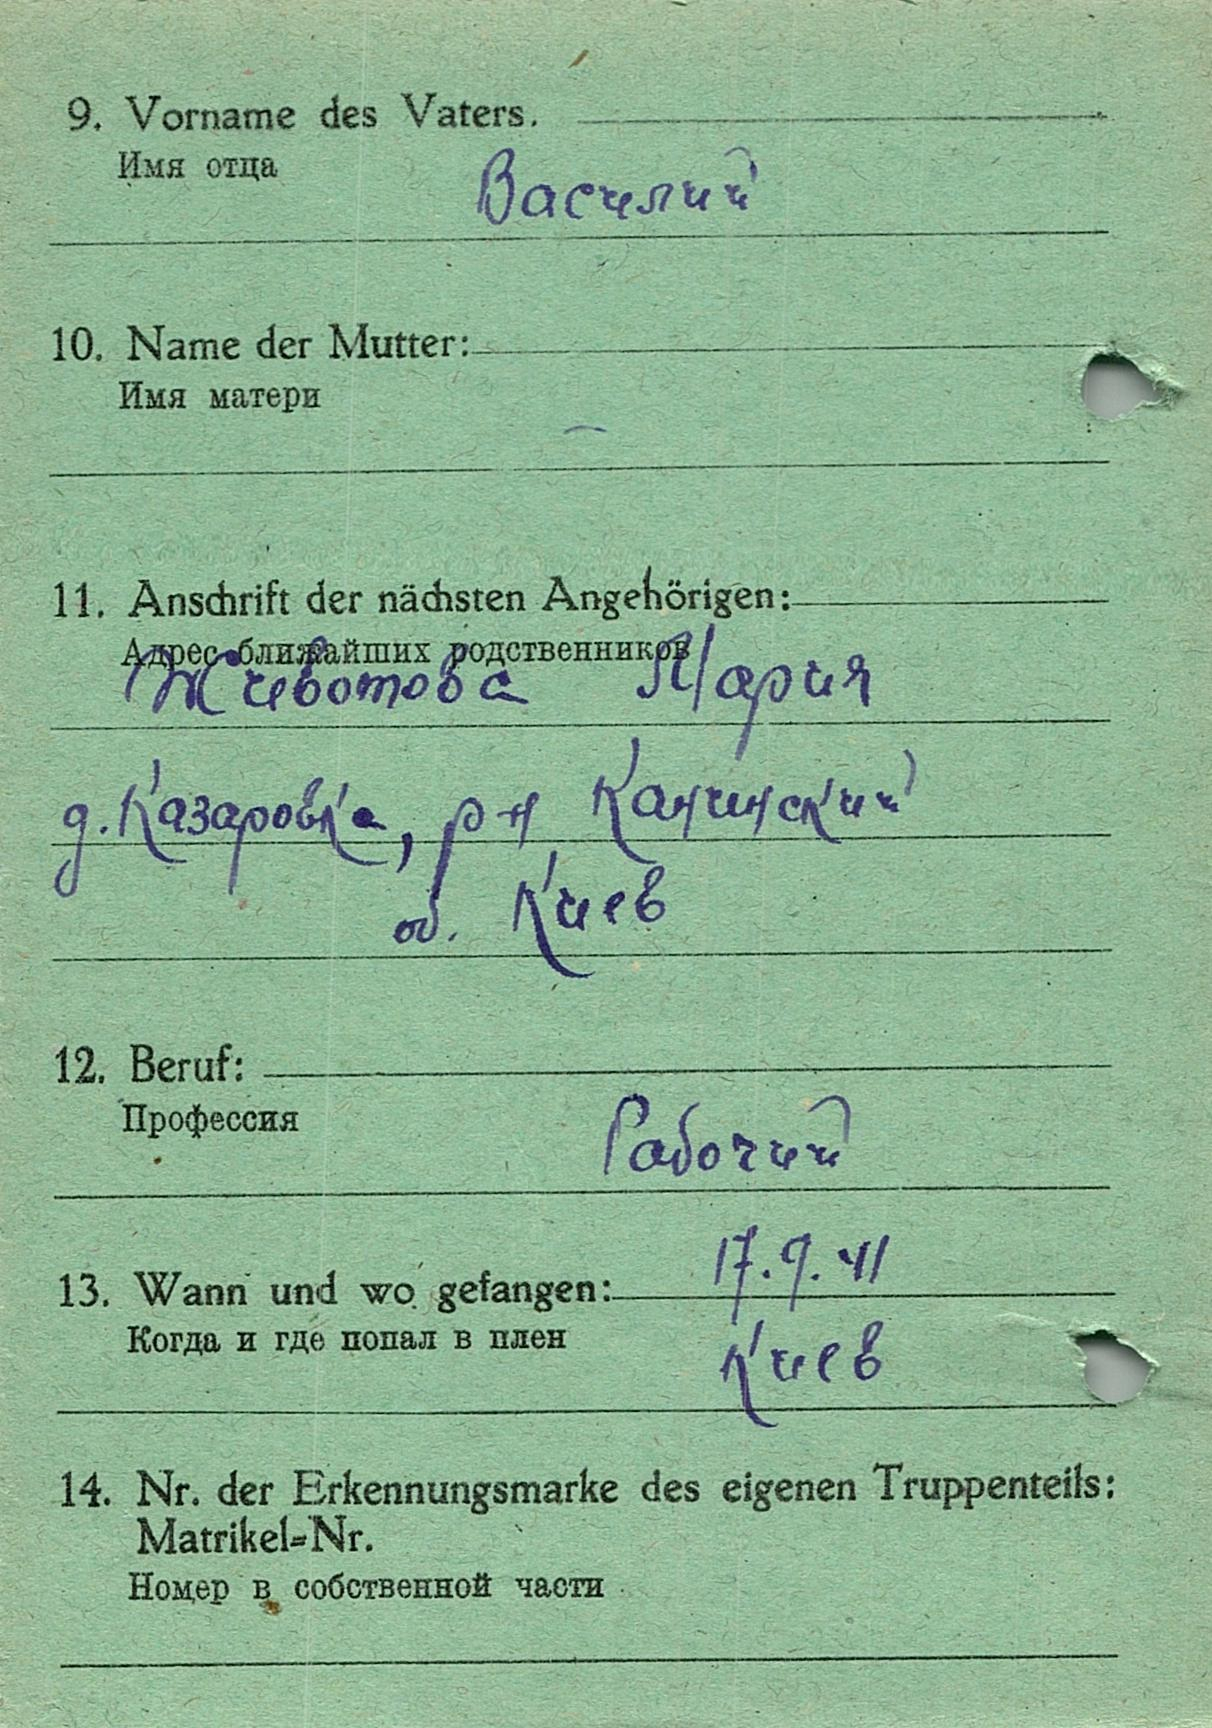 9. Vorname des Vaters.
Имя отца
Василий
10. Name der Mutter:
Имя матери
—
11. Anschrift der nächsten Angehörigen:
Адрес ближайших родственников
Животова Мария
д. Казаровка, р-н Канинский
об. Киев
12. Beruf:
Профессия
Рабочий
13. Wann und wo gefangen:
17.9.41
Когда и где попал в плен
Киев
14. Nr. der Erkennungsmarke des eigenen Truppenteils:
Matrikel-Nr.
Номер в собственной части